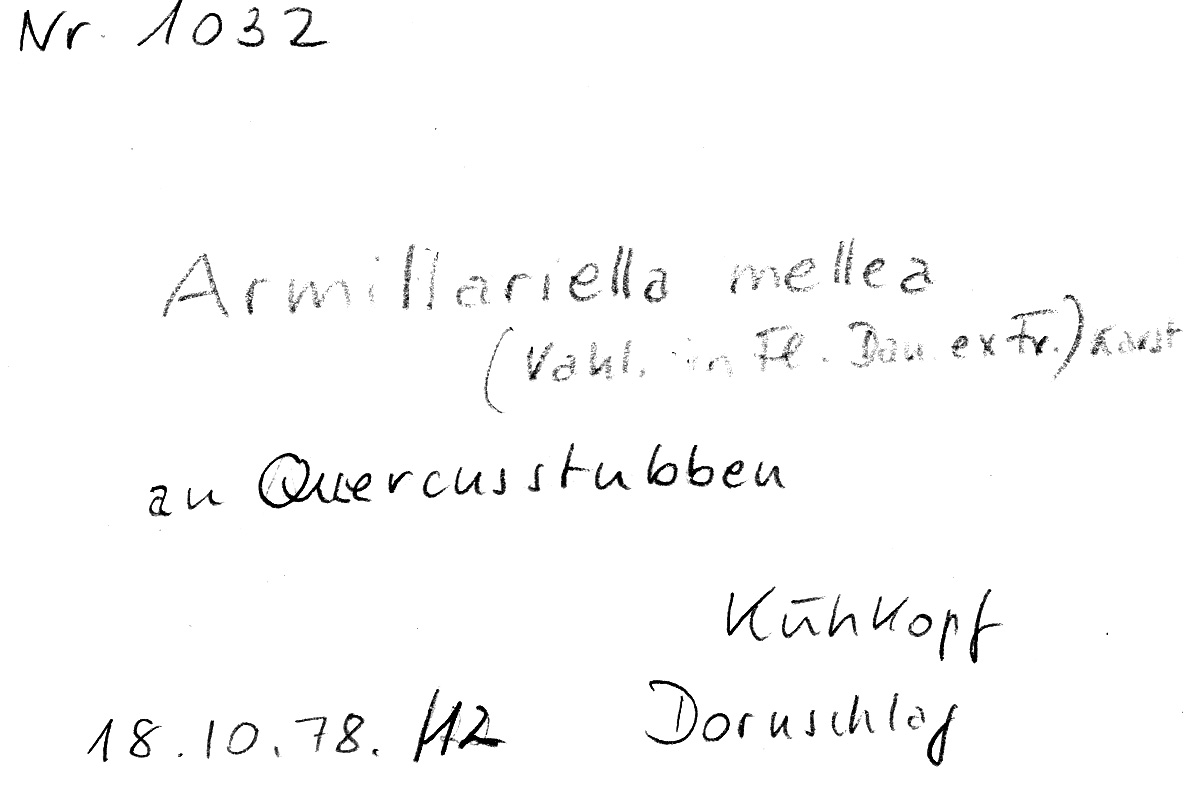 Nr. 1032
Armillariella mellea
(Vahl. in Fl. Dan. ex Fr.) Karst
an Quercusstubben
Kühkopf
18.10.78. Dornschlag